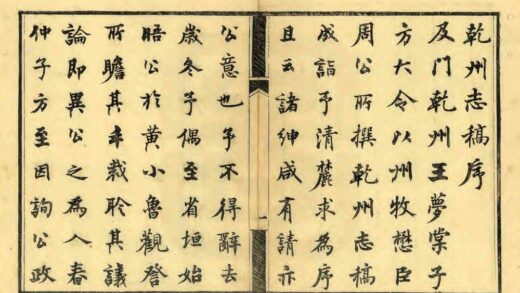 乾州志稿序
及門乾州王夢棠子
方大令以州牧懋臣
周公所撰乾州志稿
成詣予清麓求為序
且云諸紳咸有請亦
公意也予不得辭去
歲冬予偶至省垣始
晤公於黄小魯觀詧
所瞻其丰裁聆其議
論即異公之為人春
仲子方至因詢公政